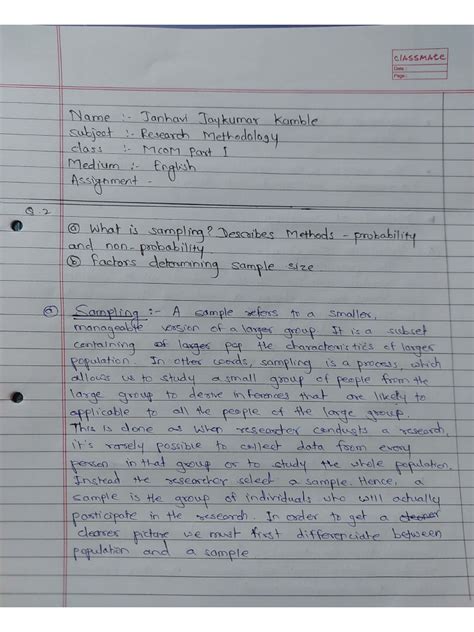 CLASSMATE
Date :
Page :
Name :- Janhavi Jaykumar Kamble
Subject :- Research Methodology
class :- Mcom Part I
Medium :- English
Assignment -
Q.2
(a) What is sampling? Describes Methods - probability
and non-probability
(b) factors determining sample size
(a) Sampling :- A sample refers to a smaller,
manageable version of a larger group. It is a subset
containing of larger pop the characteristics of larger
population. In other words, sampling is a process, which
allows us to study a small group of people from the
large group to derive inferences that are likely to
applicable to all the people of the large group.
This is done as when researcher conducts a research,
it's rarely possible to collect data from every
person in that group or to study the whole population.
Instead the researcher select a sample. Hence, a
sample is the group of individuals who will actually
participate in the research. In order to get a cleaner
clearer picture we must first differenciate between
population and a sample